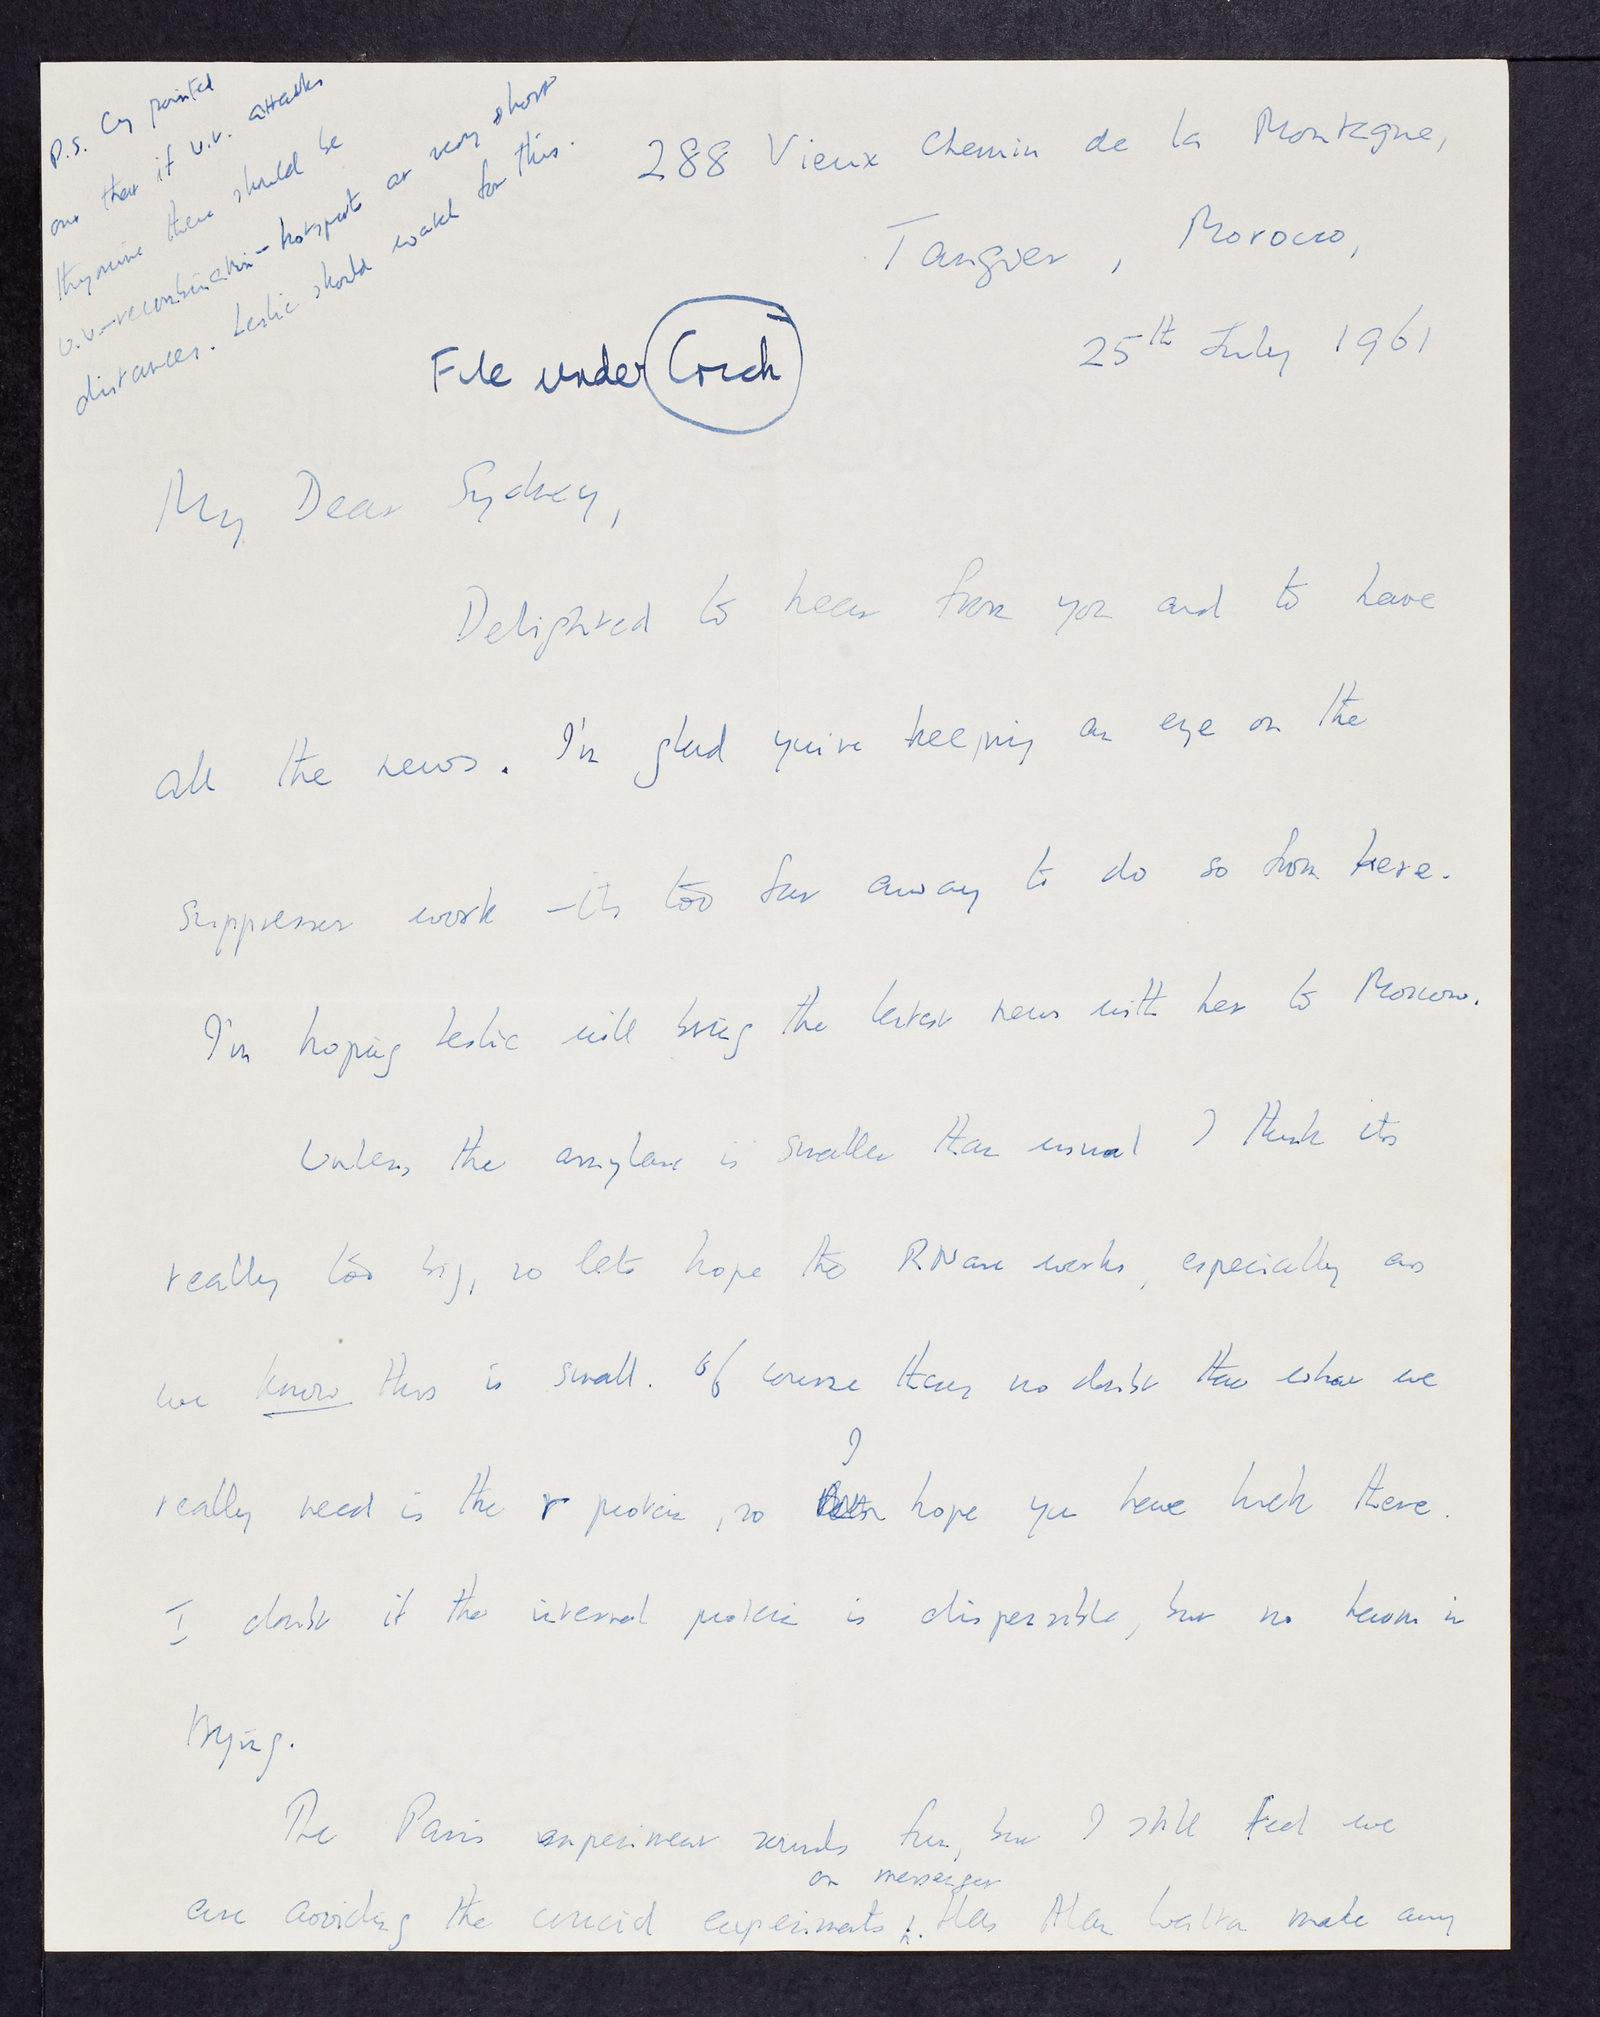 P.S. Cy pointed
out that if u.v. attacks
thymine there should be
u.v-recombination-hotspots at very short
distances. Leslie should watch for this.
288 Vieux Chemin de la Montagne,
Tangier, Morocco,
25th July 1961
File under Crick
My Dear Sydney,
Delighted to hear from you and to have
all the news. I'm glad you're keeping an eye on the
suppressor work - its too far away to do so from here.
I'm hoping Leslie will bring the latest news with her to Moscow.
Unless the amylase is smaller than usual I think its
really too big, so lets hope the RNase works, especially as
we know this is small. Of course theres no doubt that what we
really need is the r protein, so I hope you have luck there.
I doubt if the internal protein is dispensible, but no harm in
trying.
The Paris experiment sounds fun, but I still feel we
on messenger
are avoiding the crucial experiments. Has Alan make any